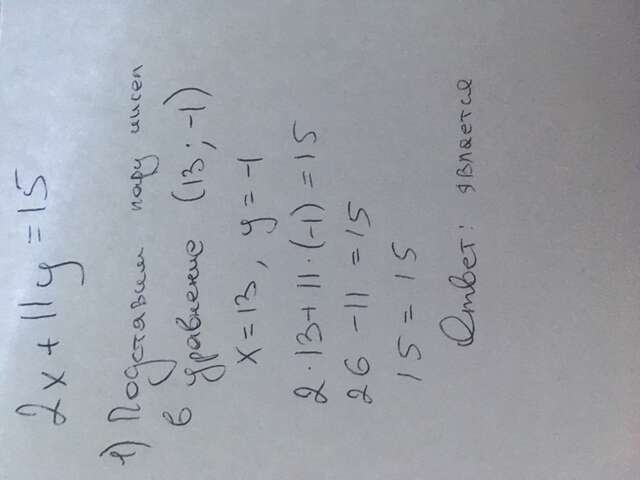 2x + 11y = 15
1) Подставим пару чисел
в уравнение (13 ; -1)
x = 13 , y = -1
2 · 13 + 11 · (-1) = 15
26 - 11 = 15
15 = 15
Ответ: является